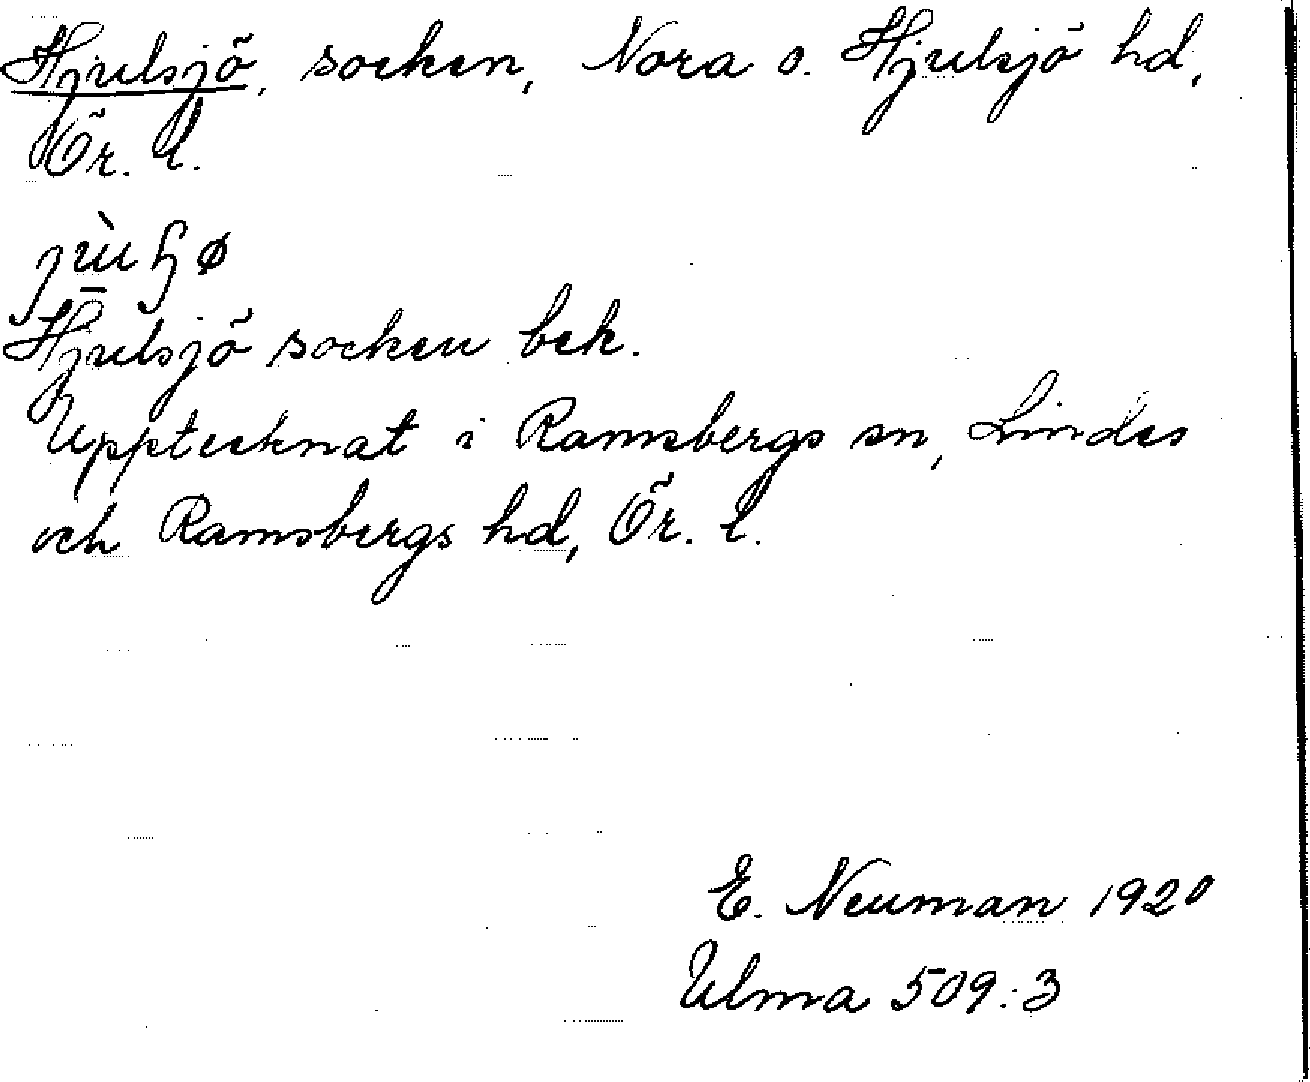 Hjulsjö, socken, Nora o. Hjulsjö hd,
Ör. l.
Hjulsjö socken bek.
Upptecknat i Ramsbergs sn, Lindes
och Ramsbergs hd, Ör. l.
E. Neuman 1920
Ulma 509:3